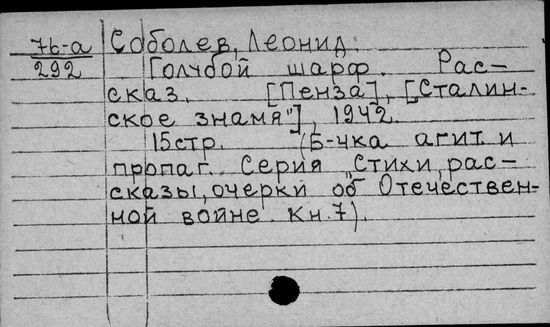 7б-а Соболев, Леонид.
292 Голубой шарф. Рас-
сказ. [Пенза], [„Сталин-
ское знамя"], 1942.
15стр. (Б-чка агит. и
пропаг. Серия „Стихи, рас-
сказы, очерки об Отечествен-
ной войне. Кн.7).